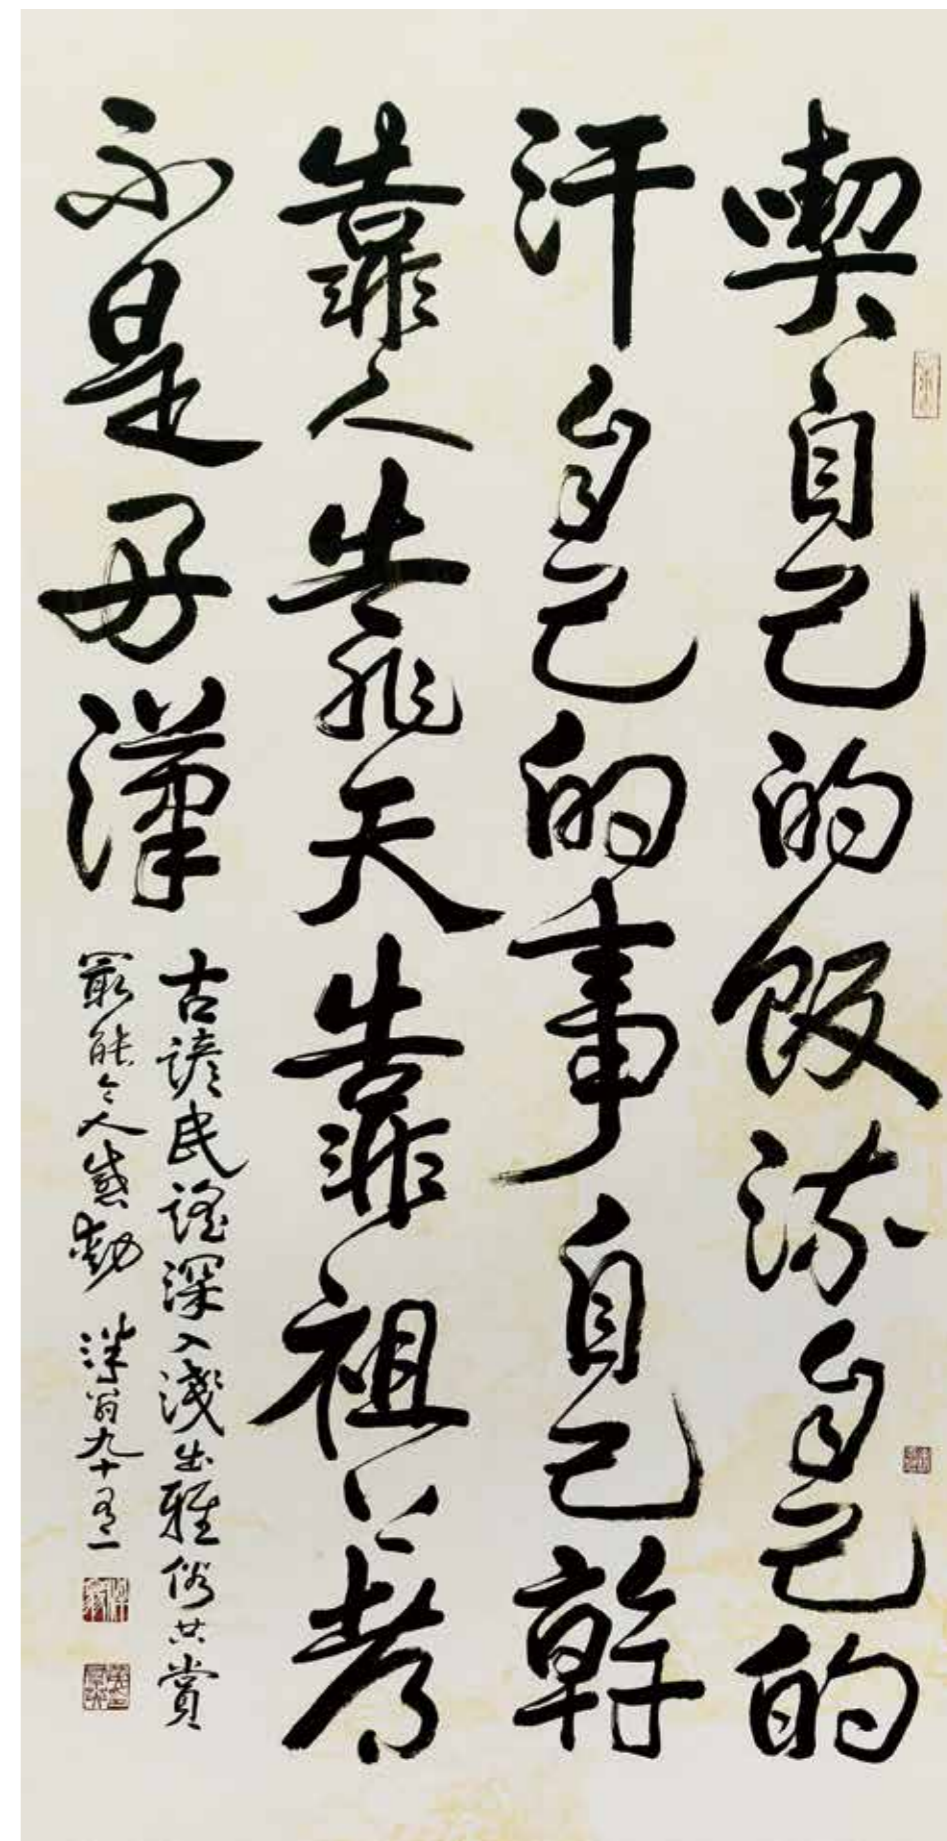 喫自己的飯流自己的
汗自己的事自己幹
靠人靠天靠祖
不是好漢
古諺民謠深入淺出雅俗共賞
最能令人感動 翁九十有一